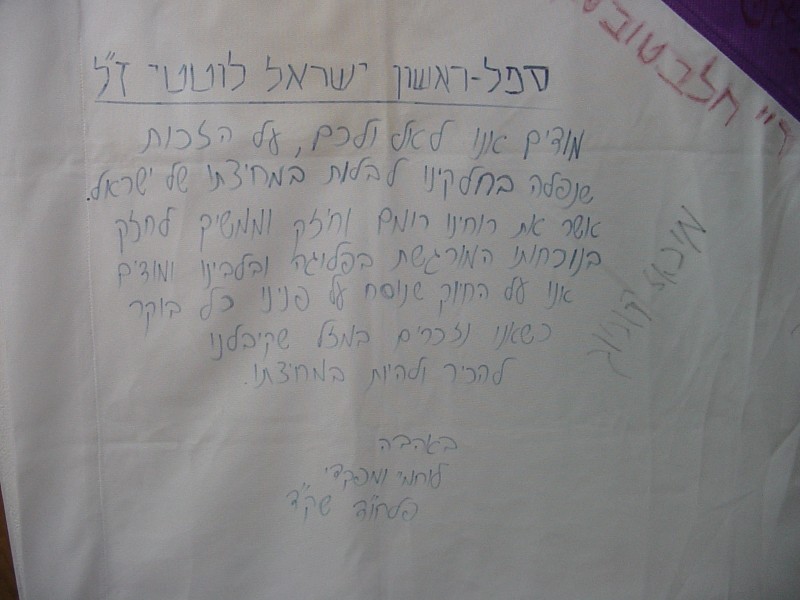 רי חלבטוב
סמל-ראשון ישראל לוטטי ז"ל
מודים אנו לאל ולכם, על הזכות
שנפלה בחלקינו לבלות במחיצתו של ישראל.
אשר את רוחינו רומם וחיזק וממשיך לחזק
בנוכחותו המורגשת בפלוגה ובלבינו ומודים
אנו על החיוך שנוסח על פנינו כל בוקר
כשאנו נזכרים במזל שקיבלנו
להכיר ולהיות במחיצתו.
באהבה
לוחמי ומפקדי
פלחו"ד שק"ד
מיכאל